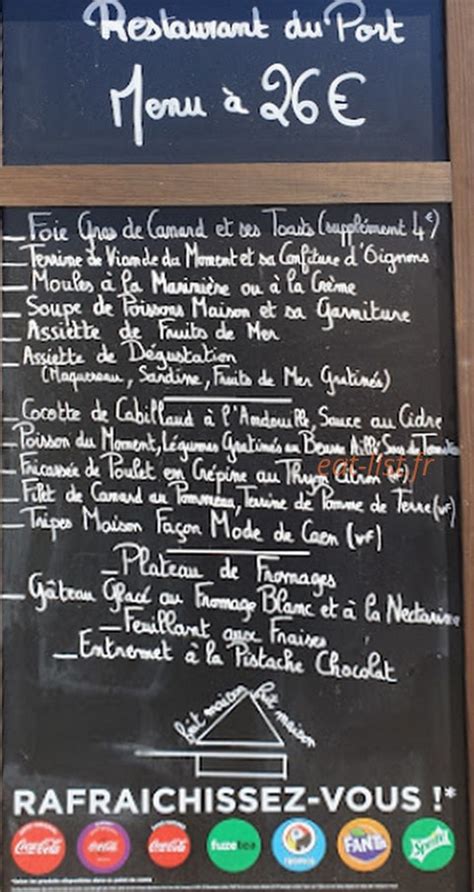 Restaurant du Port
Menu à 26€
_ Foie Gras de Canard et ses Toasts (supplément 4€)
_ Terrine de Viande du Moment et sa Confiture d'Oignons
_ Moules à la Marinière ou à la Crème
_ Soupe de Poissons Maison et sa Garniture
_ Assiette de Fruits de Mer
_ Assiette de Dégustation
(Maquereau, Sardine, Fruits de Mer Gratinés)
_ Cocotte de Cabillaud à l'Andouille, Sauce au Cidre
_ Poisson du Moment, Légumes Gratinés au Beurre Aillé,
_ Fricassée de Poulet en Crépine au Thym Citron (vf)
eat-list.fr
_ Filet de Canard au Pommeau, Terrine de Pomme de Terre (vf)
_ Tripes Maison Façon Mode de Caen (vf)
_ Plateau de Fromages
_ Gâteau Glacé au Fromage Blanc et à la Nectarine
_ Feuillant aux Fraises
_ Entremet à la Pistache Chocolat
fait maison fait maison
RAFRAICHISSEZ-VOUS !*
Coca-Cola Coca-Cola Coca-Cola fuzetea FANTA